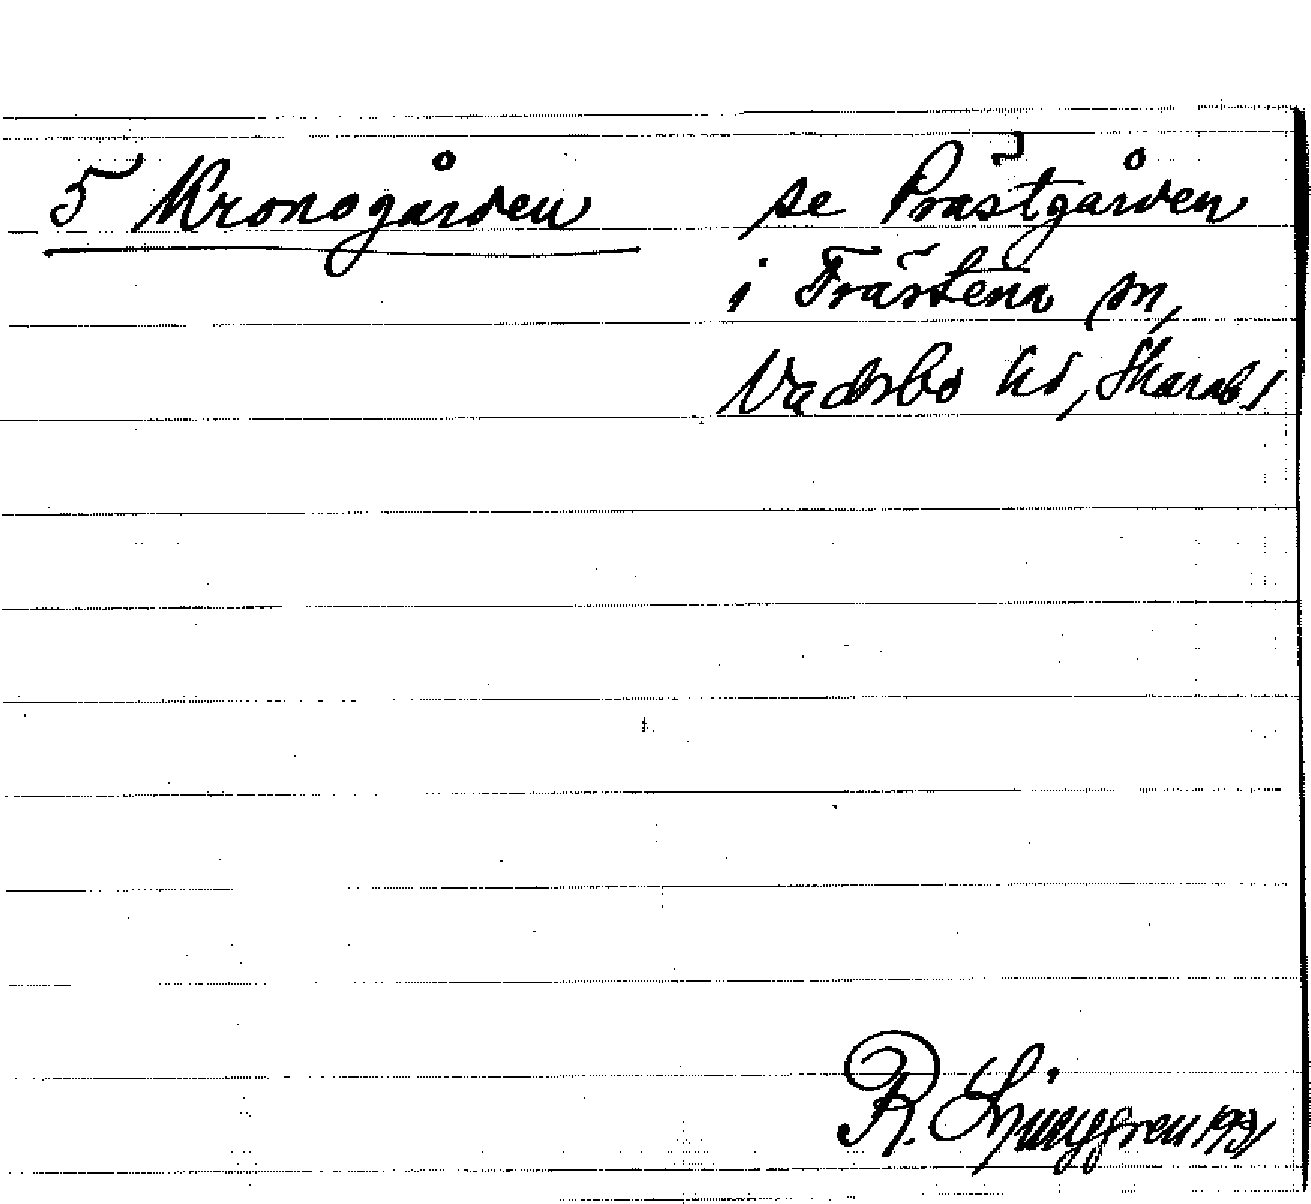 5 Kronogården se Prästgården
i Trästena sn,
Vadsbo hd, Skarab. l
R. Ljunggren